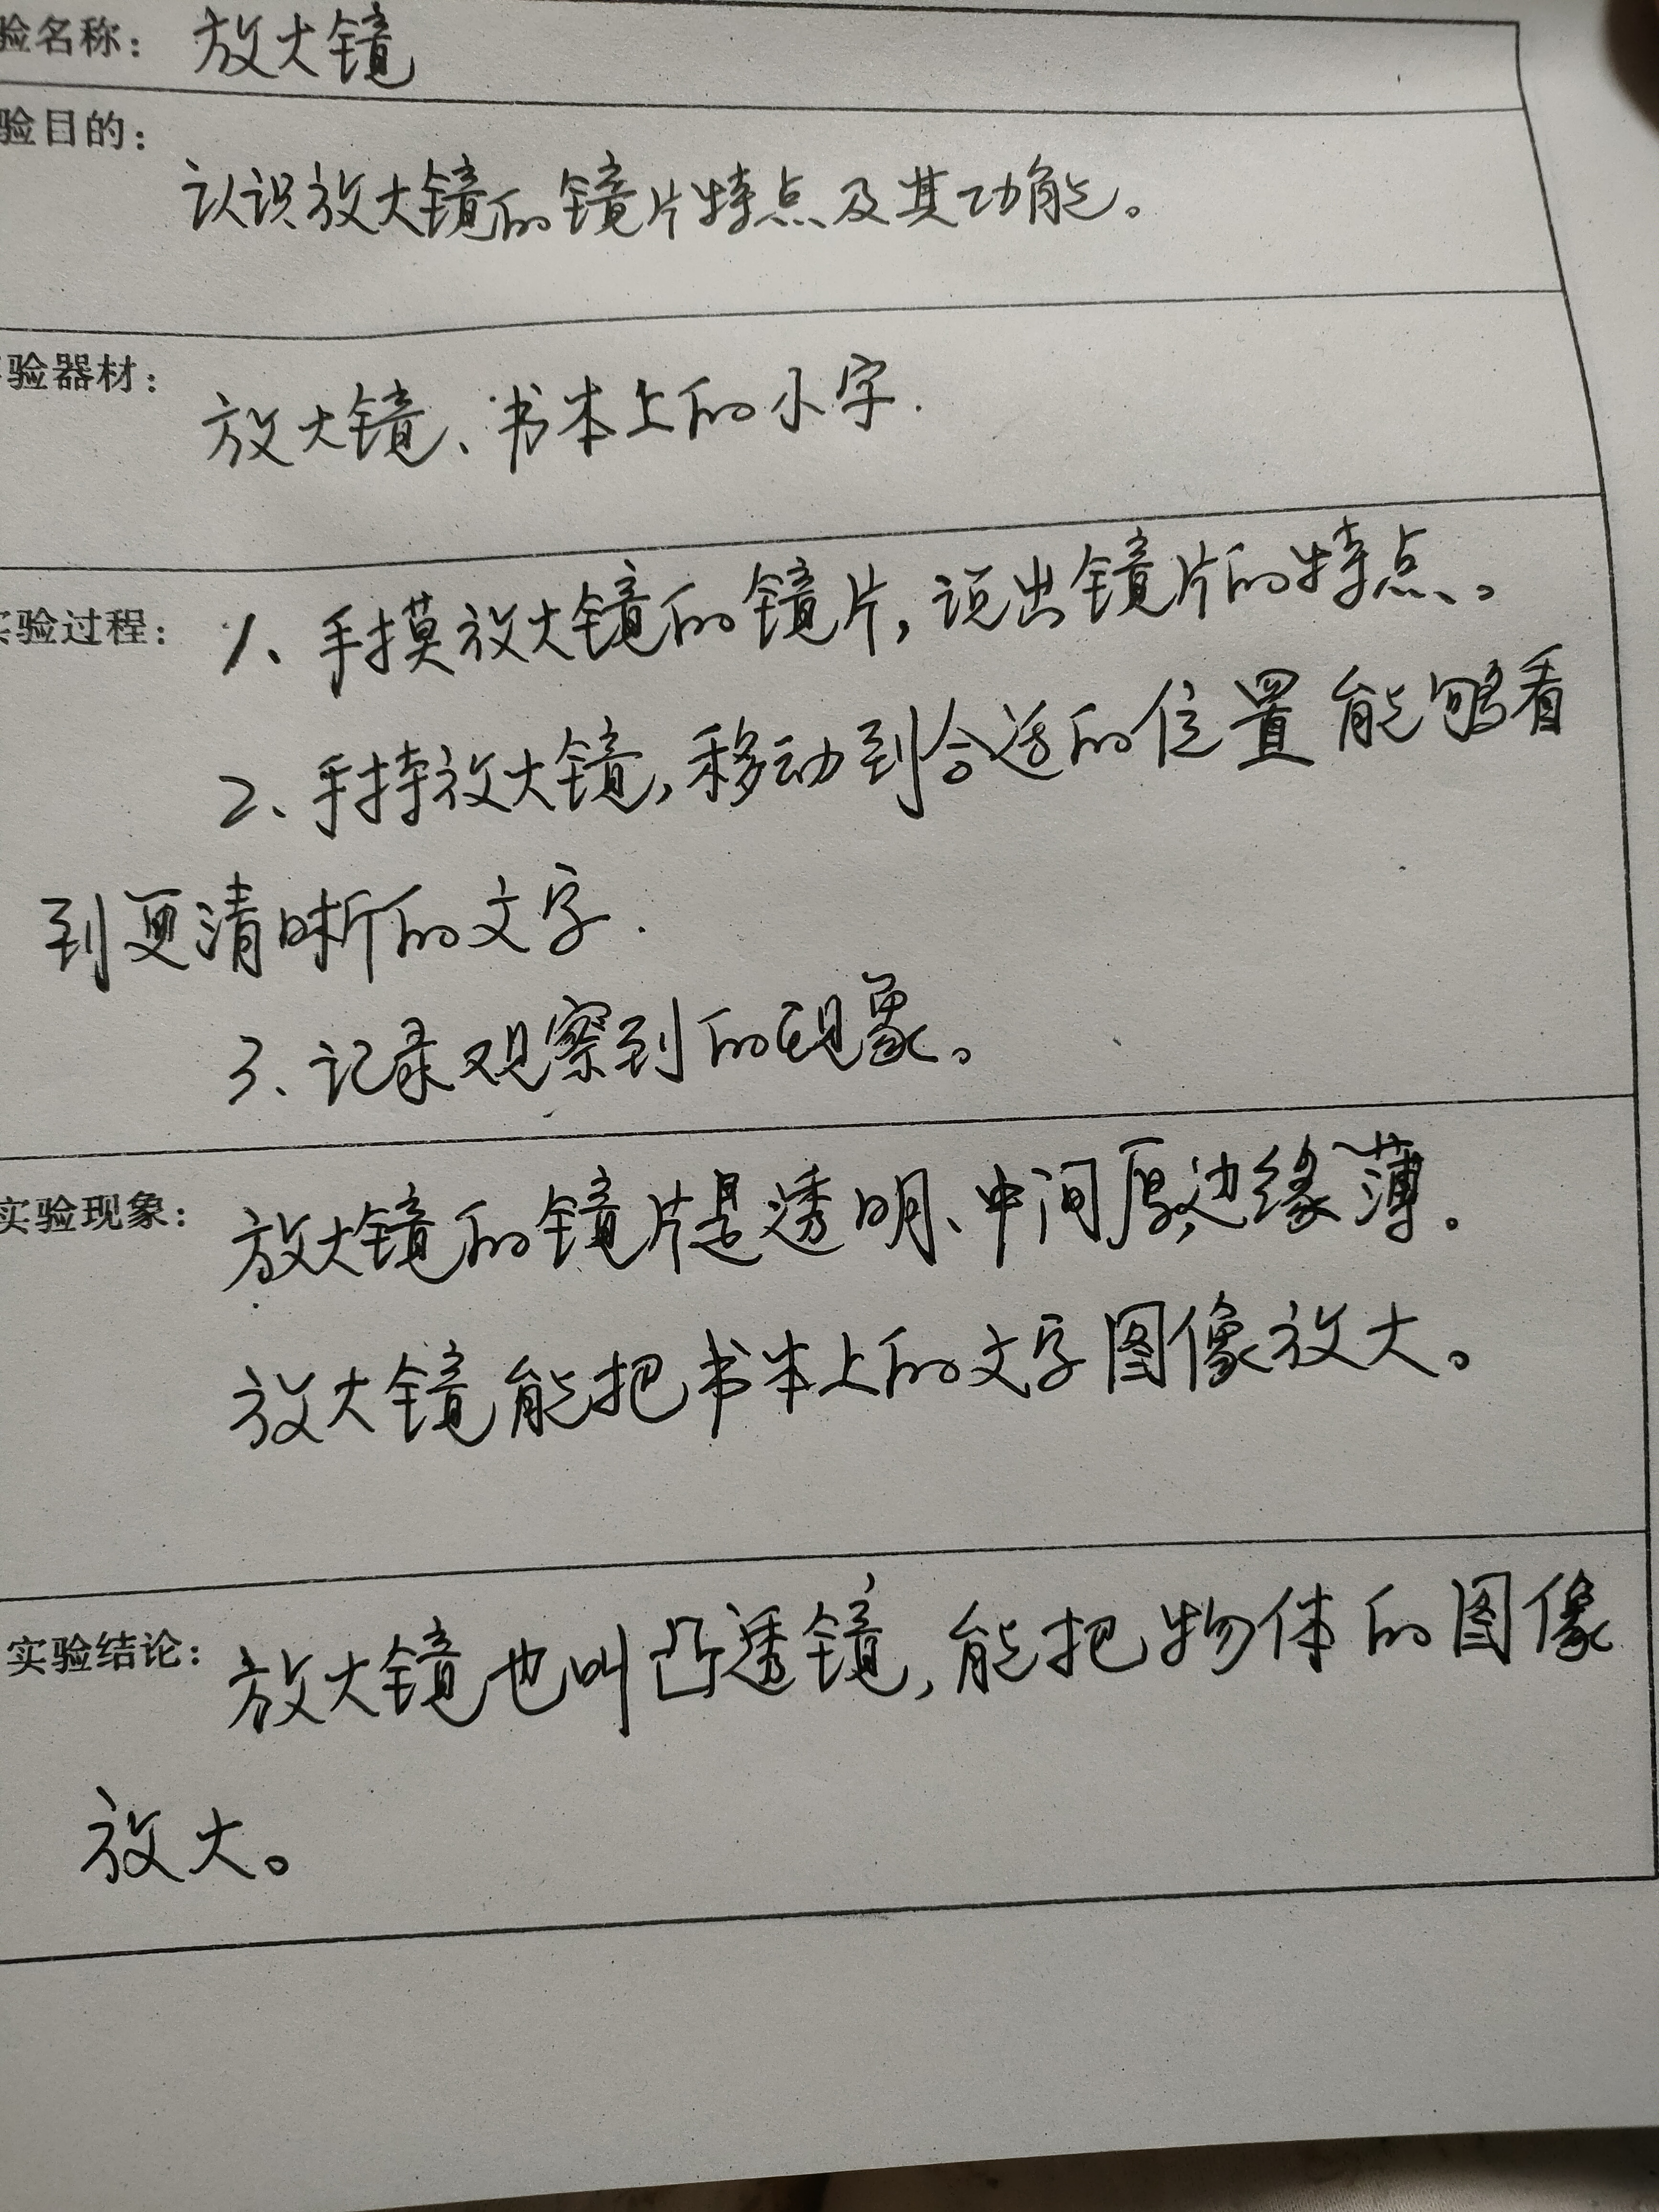 验名称：放大镜
验目的：
认识放大镜的镜片特点及其功能。
验器材：
放大镜、书本上的小字.
实验过程：1、手摸放大镜的镜片,说出镜片的特点、。
2、手持放大镜,移动到合适的位置能够看
到更清晰的文字.
3、记录观察到的现象。
实验现象：放大镜的镜片是透明、中间厚边缘薄。
放大镜能把书本上的文字图像放大。
实验结论：放大镜也叫凸透镜,能把物体的图像
放大。